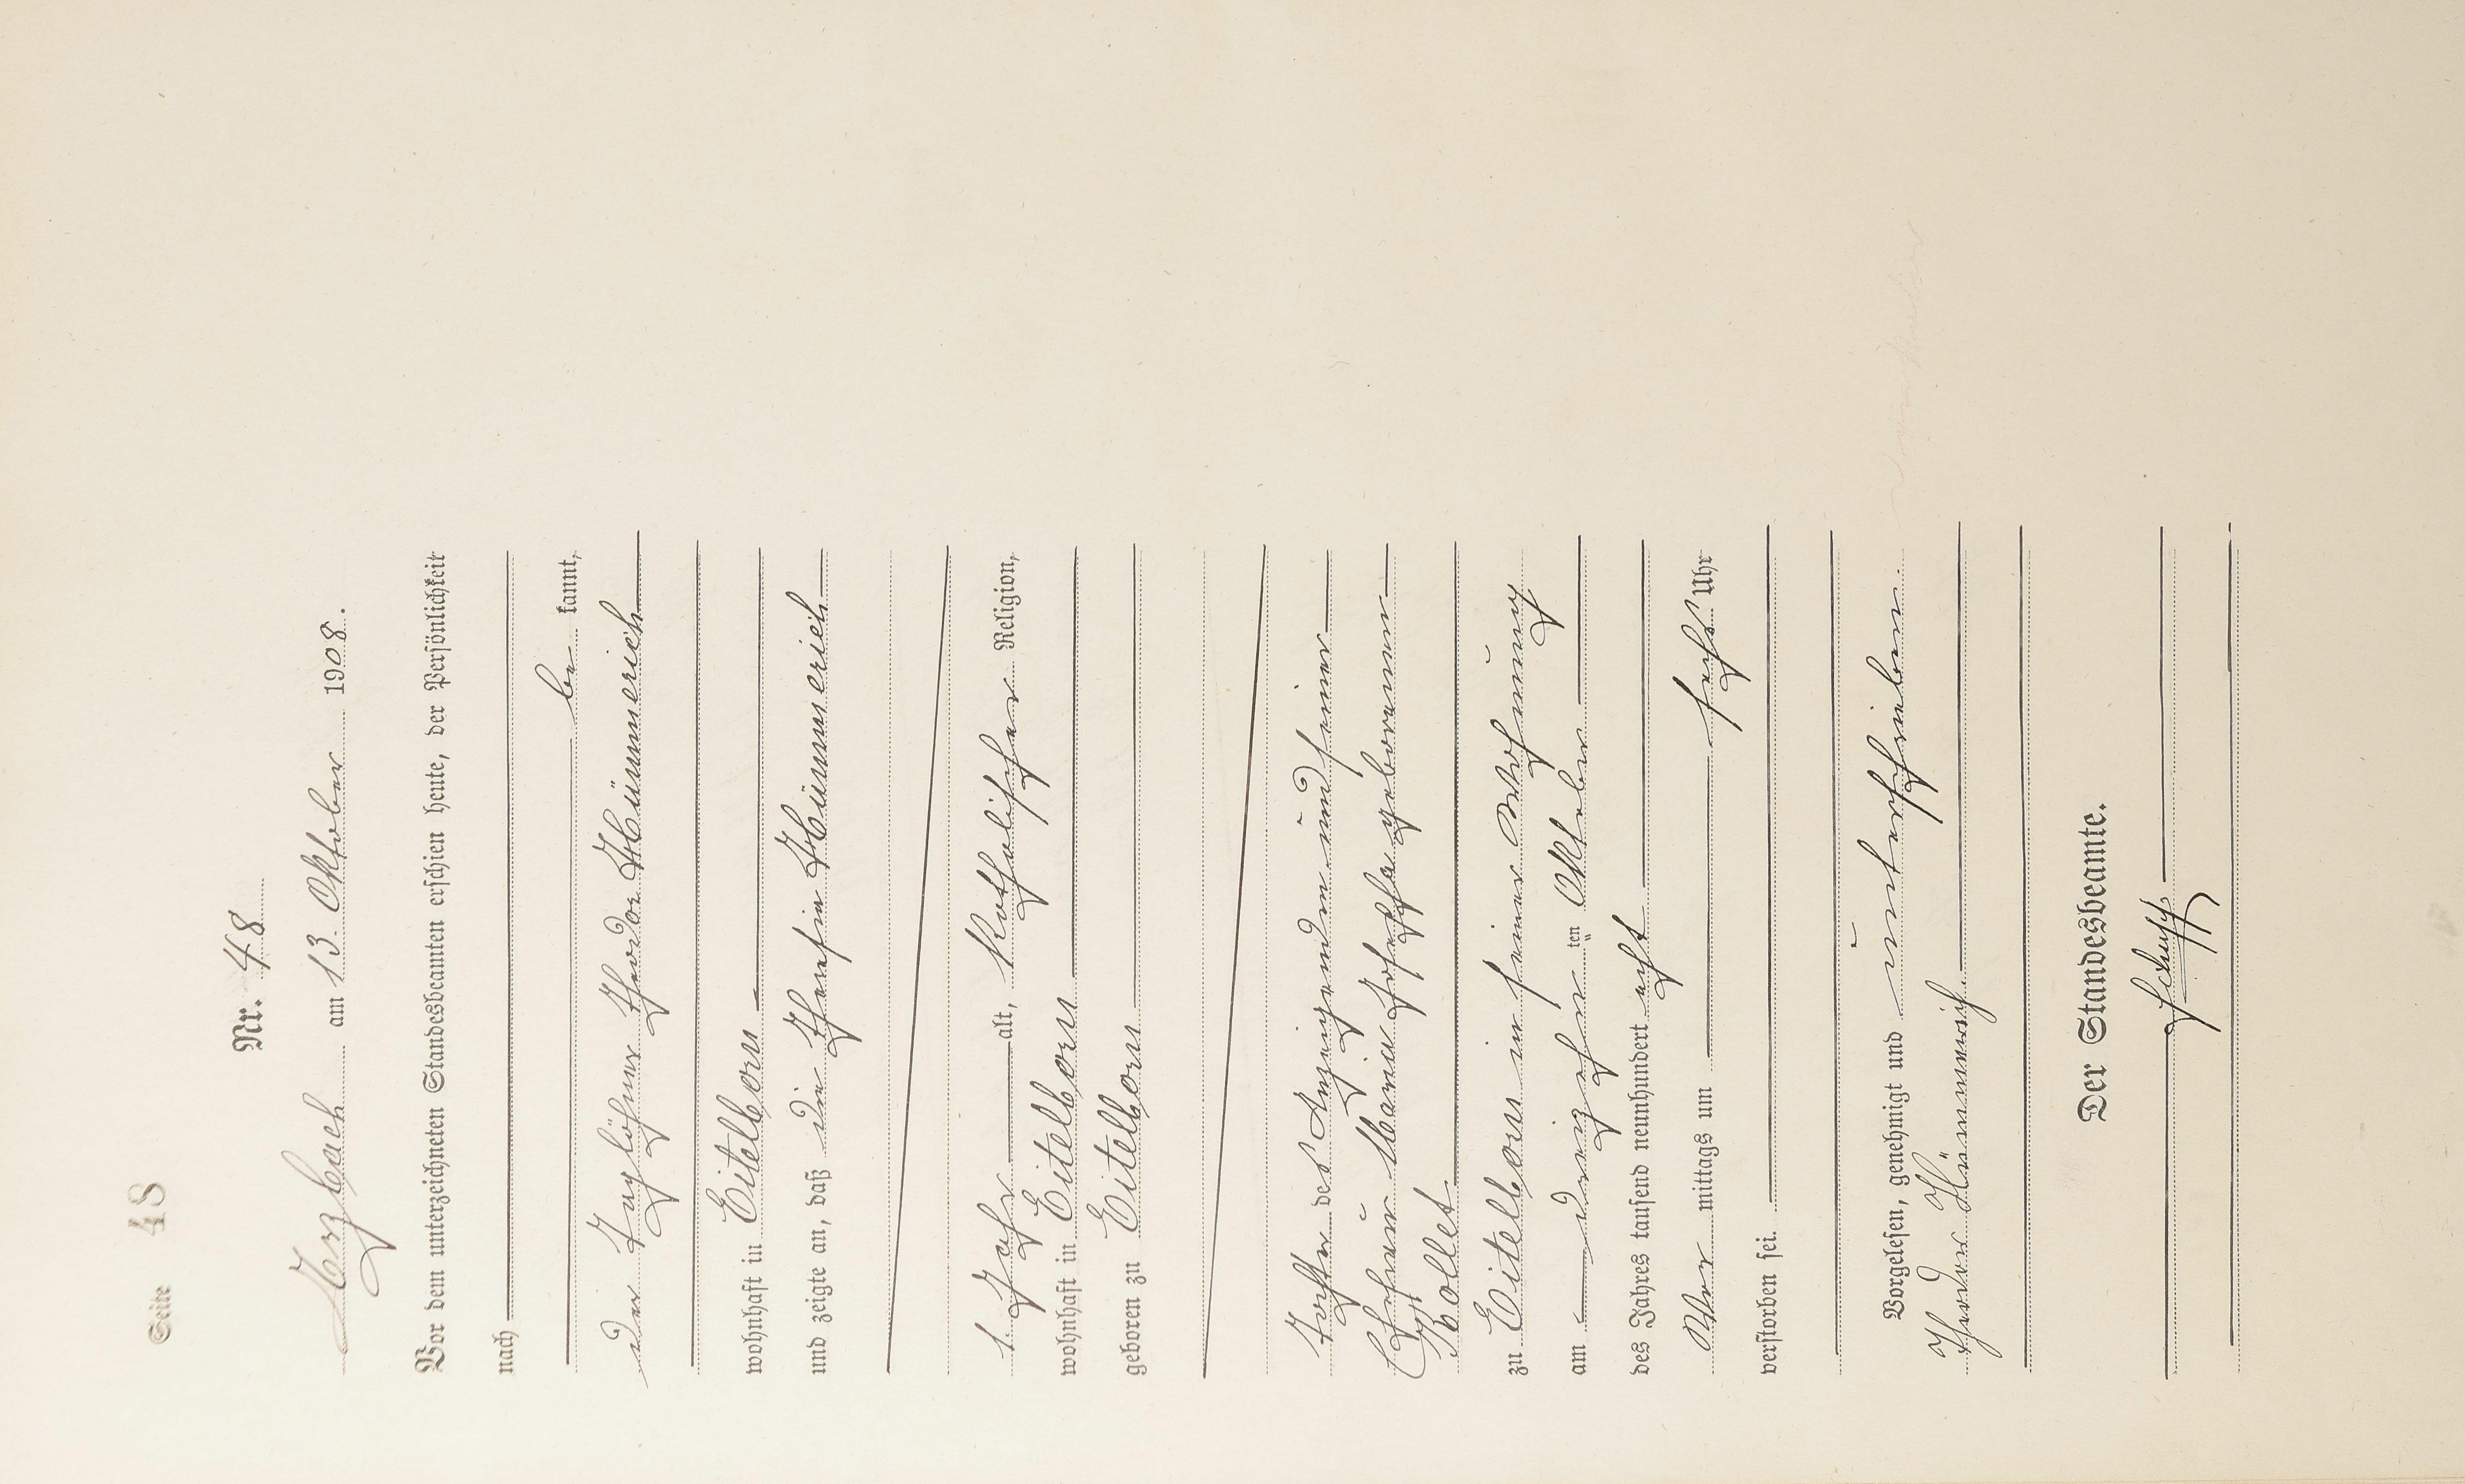 Seite 48
Nr. 48
Arzbach am 13. Oktober 1908.
Vor dem unterzeichneten Standesbeamten erschien heute, der Persönlichkeit
nach
be kannt,
der Taglöhner Theodor Hümmerich
wohnhaft in Eitelborn
und zeigte an, daß die Theresia Hümmerich
1 Jahr alt, Katholischer Religion,
wohnhaft in Eitelborn
geboren zu Eitelborn
Tochter des Anzeigenden und seiner
Ehefrau Maria Josepha geborenen
Bollet
zu Eitelborn in seiner Wohnung
am dreizehn ten Oktober
des Jahres tausend neunhundert acht
Vor mittags um sechs Uhr
verstorben sei.
Vorgelesen, genehmigt und unterschrieben
Theodor Hümmerich
Der Standesbeamte.